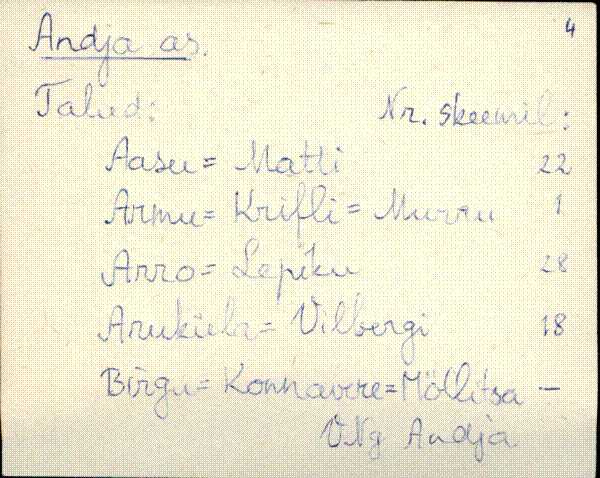 Andja as. 4
Talud: Nr. skeemil:
Aasu = Matti 22
Armu = Krifli = Murru 1
Arro = Lepiku 28
Aruküla = Vilbergi 18
Birgu = Konnavere = Möllitsa —
VNg Andja